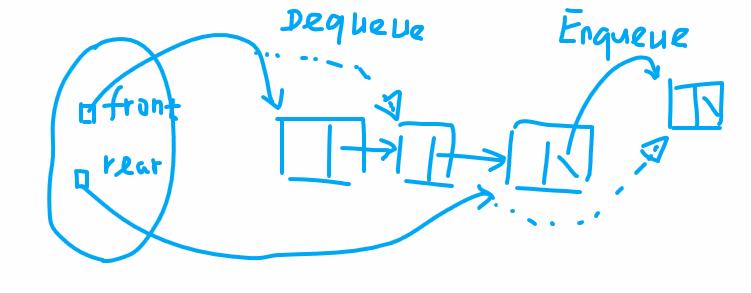 Dequeue
Enqueue
front
rear